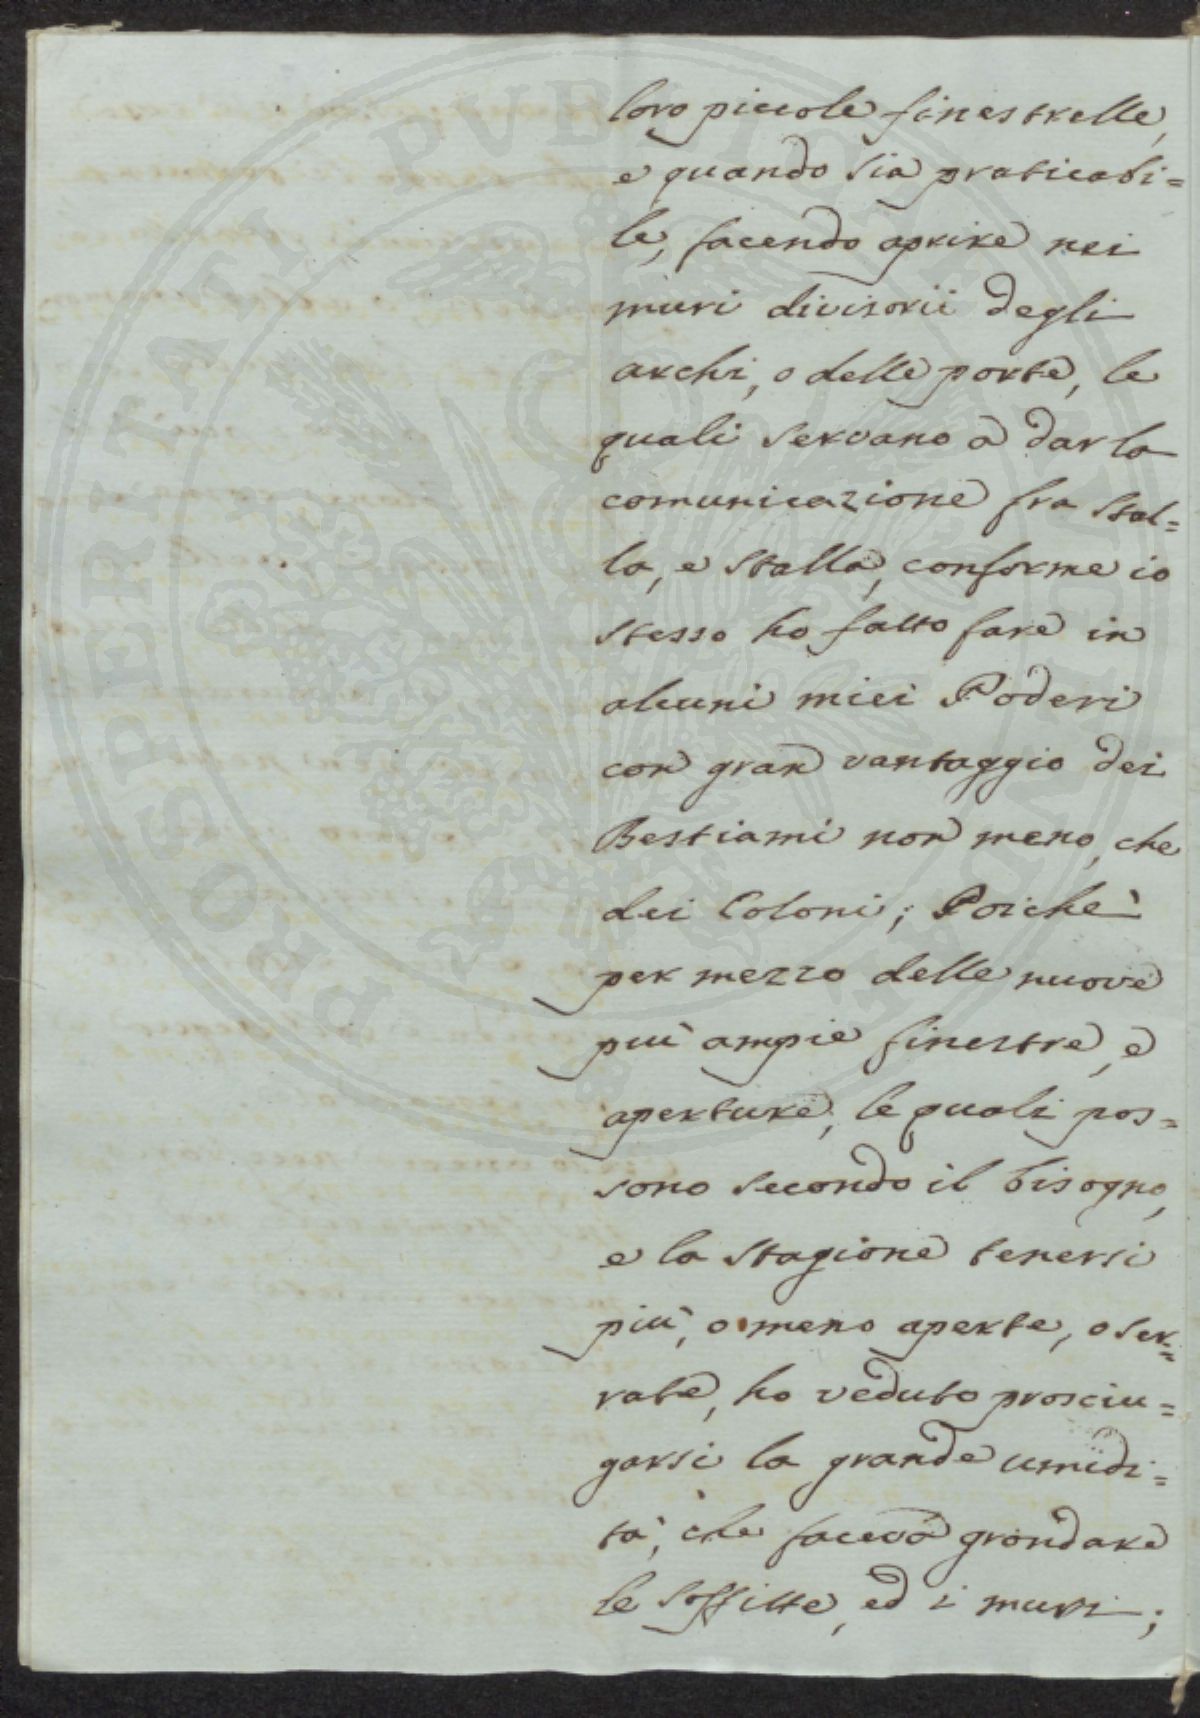 loro piccole finestrelle,
e quando sia praticabi=
le, facendo aprire nei
muri divisorii degli
archi, o delle porte, le
quali servano a dar la
comunicazione fra stal=
la, e stalla, conforme io
stesso ho fatto fare in
alcuni miei Poderi
con gran vantaggio dei
Bestiami non meno, che
dei Coloni; Poichè
per mezzo delle nuove
più ampie finestre, e
aperture, le quali pos=
sono secondo il bisogno,
e la stagione tenersi
più, o meno aperte, o ser=
rate, ho veduto prosciu=
garsi la grande umidi=
tà, che faceva grondare
le soffitte, ed i muri;
PROSPERITATI PUBLICAE AUGENDAE